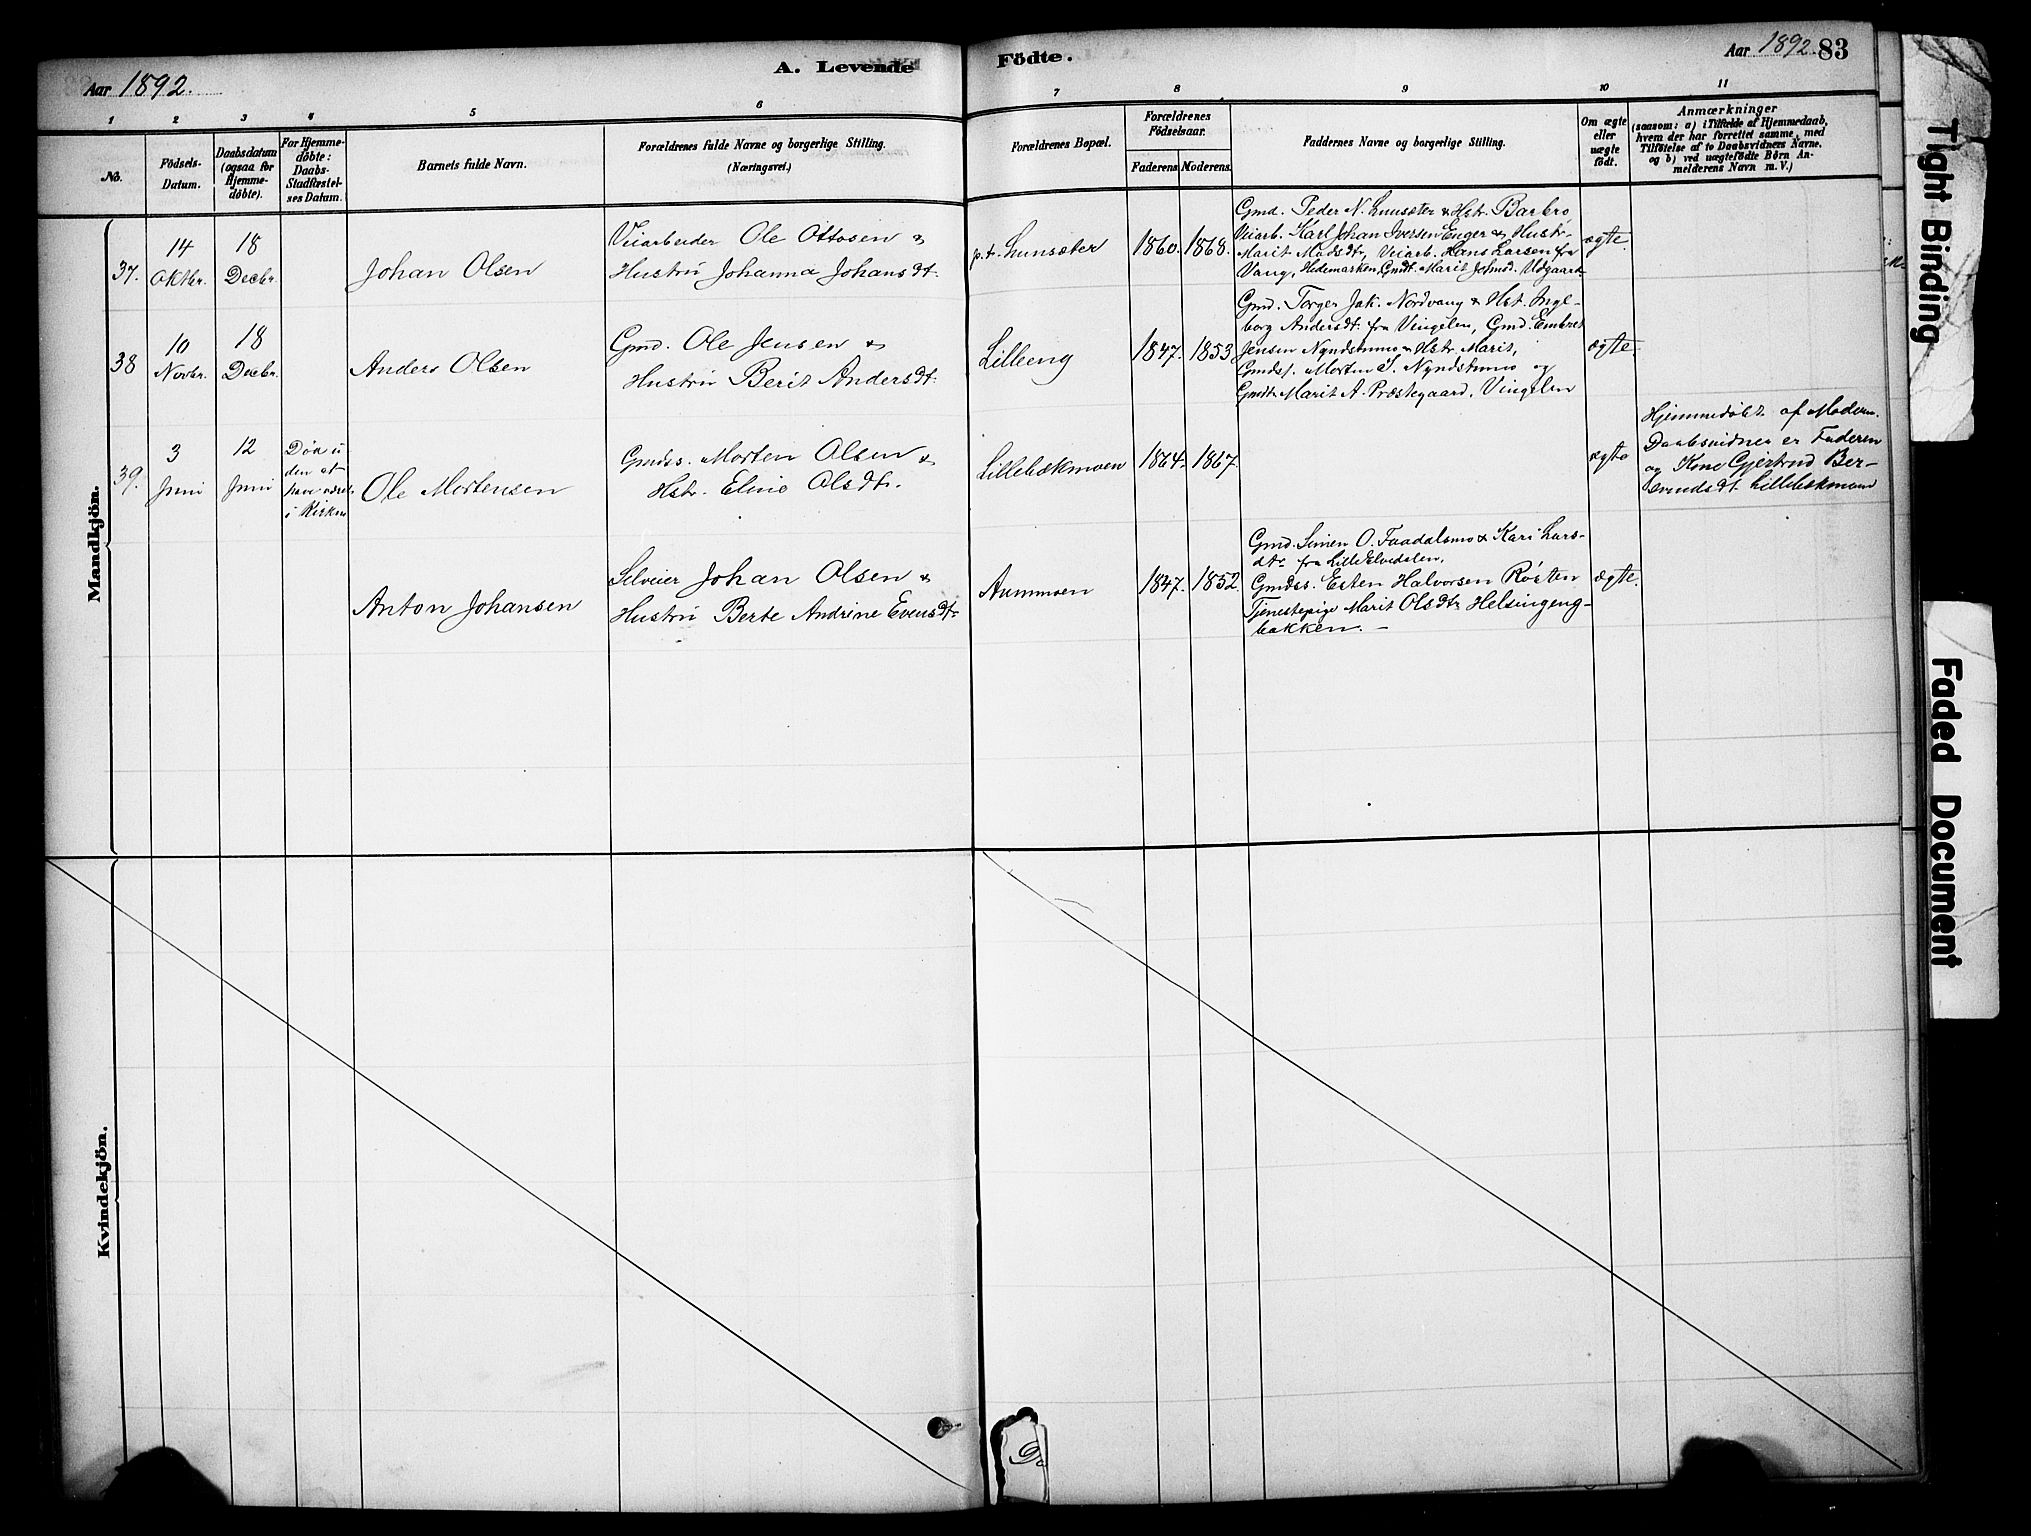 Aar 1892.
A. Levende
Födte.
Aar 1892. 83
1 2 3 4 5 6
7 8 9 10 11
No.
Födsels-
Datum.
Daabsdatum
(ogsaa for
Hjemme-
döbte).
For Hjemme-
döbte:
Daabs-
Stadfæstel-
ses Datum.
Barnets fulde Navn.
Forældrenes fulde Navne og borgerlige Stilling.
(Næringsvei.)
Forældrenes Bopæl.
Forældrenes
Födselsaar.
Faderens
Moderens.
Faddernes Navne og borgerlige Stilling.
Om ægte
eller
uægte
födt.
Anmærkninger
(saasom: a) i Tilfælde af Hjemmedaab,
hvem der har forrettet samme, med
Tilföielse af to Daabsvidners Navne,
og b) ved uægtefödte Börn An-
melderens Navn m. V.)
Mandkjön.
37.
14
Oktbr.
18
Decbr.
Johan Olsen
Veiarbeider Ole Ottosen &
Hustru Johanna Johansdt.
p.t. Lunsæter
1860. 1868.
Gmd. Peder N. Lunsæter & Hstr. Barbro,
Veiarb. Karl Johan Iversen Enger & Hustr.
Marit Madsdt., Veiarb. Hans Larsen fra
Vang, Hedemarken, Gmdt. Marit Johnsd. Udgaard
ægte.
38
10
Novbr.
18
Decbr.
Anders Olsen
Gmd. Ole Jensen &
Hustru Berit Andersdt.
Lilleeng
1847. 1853
Gmd. Torger Jak. Nordvang & Hst. Inge-
borg Andersdt. fra Vingelen, Gmd. Embret
Jensen Nyndstumo & Hstr. Marit,
Gmdss. Morten J. Nyndstumo og
Gmdt. Marit A. Præstegaard, Vingelen
ægte.
39.
3
Juni
12
Juni
Död u
den at
have været
i Kirken
Ole Mortensen
Gmdss. Morten Olsen &
Hstr. Eline Olsdtr.
Lillebækmoen
1864. 1867.
ægte
Hjemmedöbt af Modern.
Daabsvidner er Faderen
og Kone Gjertrud Ber-
svendsdt. Lillebækmoen
Anton Johansen
Selveier Johan Olsen &
Hustru Berte Andrine Evensdtr
Aummoen
1847. 1852.
Gmd. Simen O. Faadalsmo & Kari Lars-
dtr fra Lille Elvedalen.
Gmdss. Esten Halvorsen Rösten
Tjenestepige Marit Olsdtr Helsingeng-
bakken. -
ægte.
Kvindekjön.
Tight Binding
Faded Document